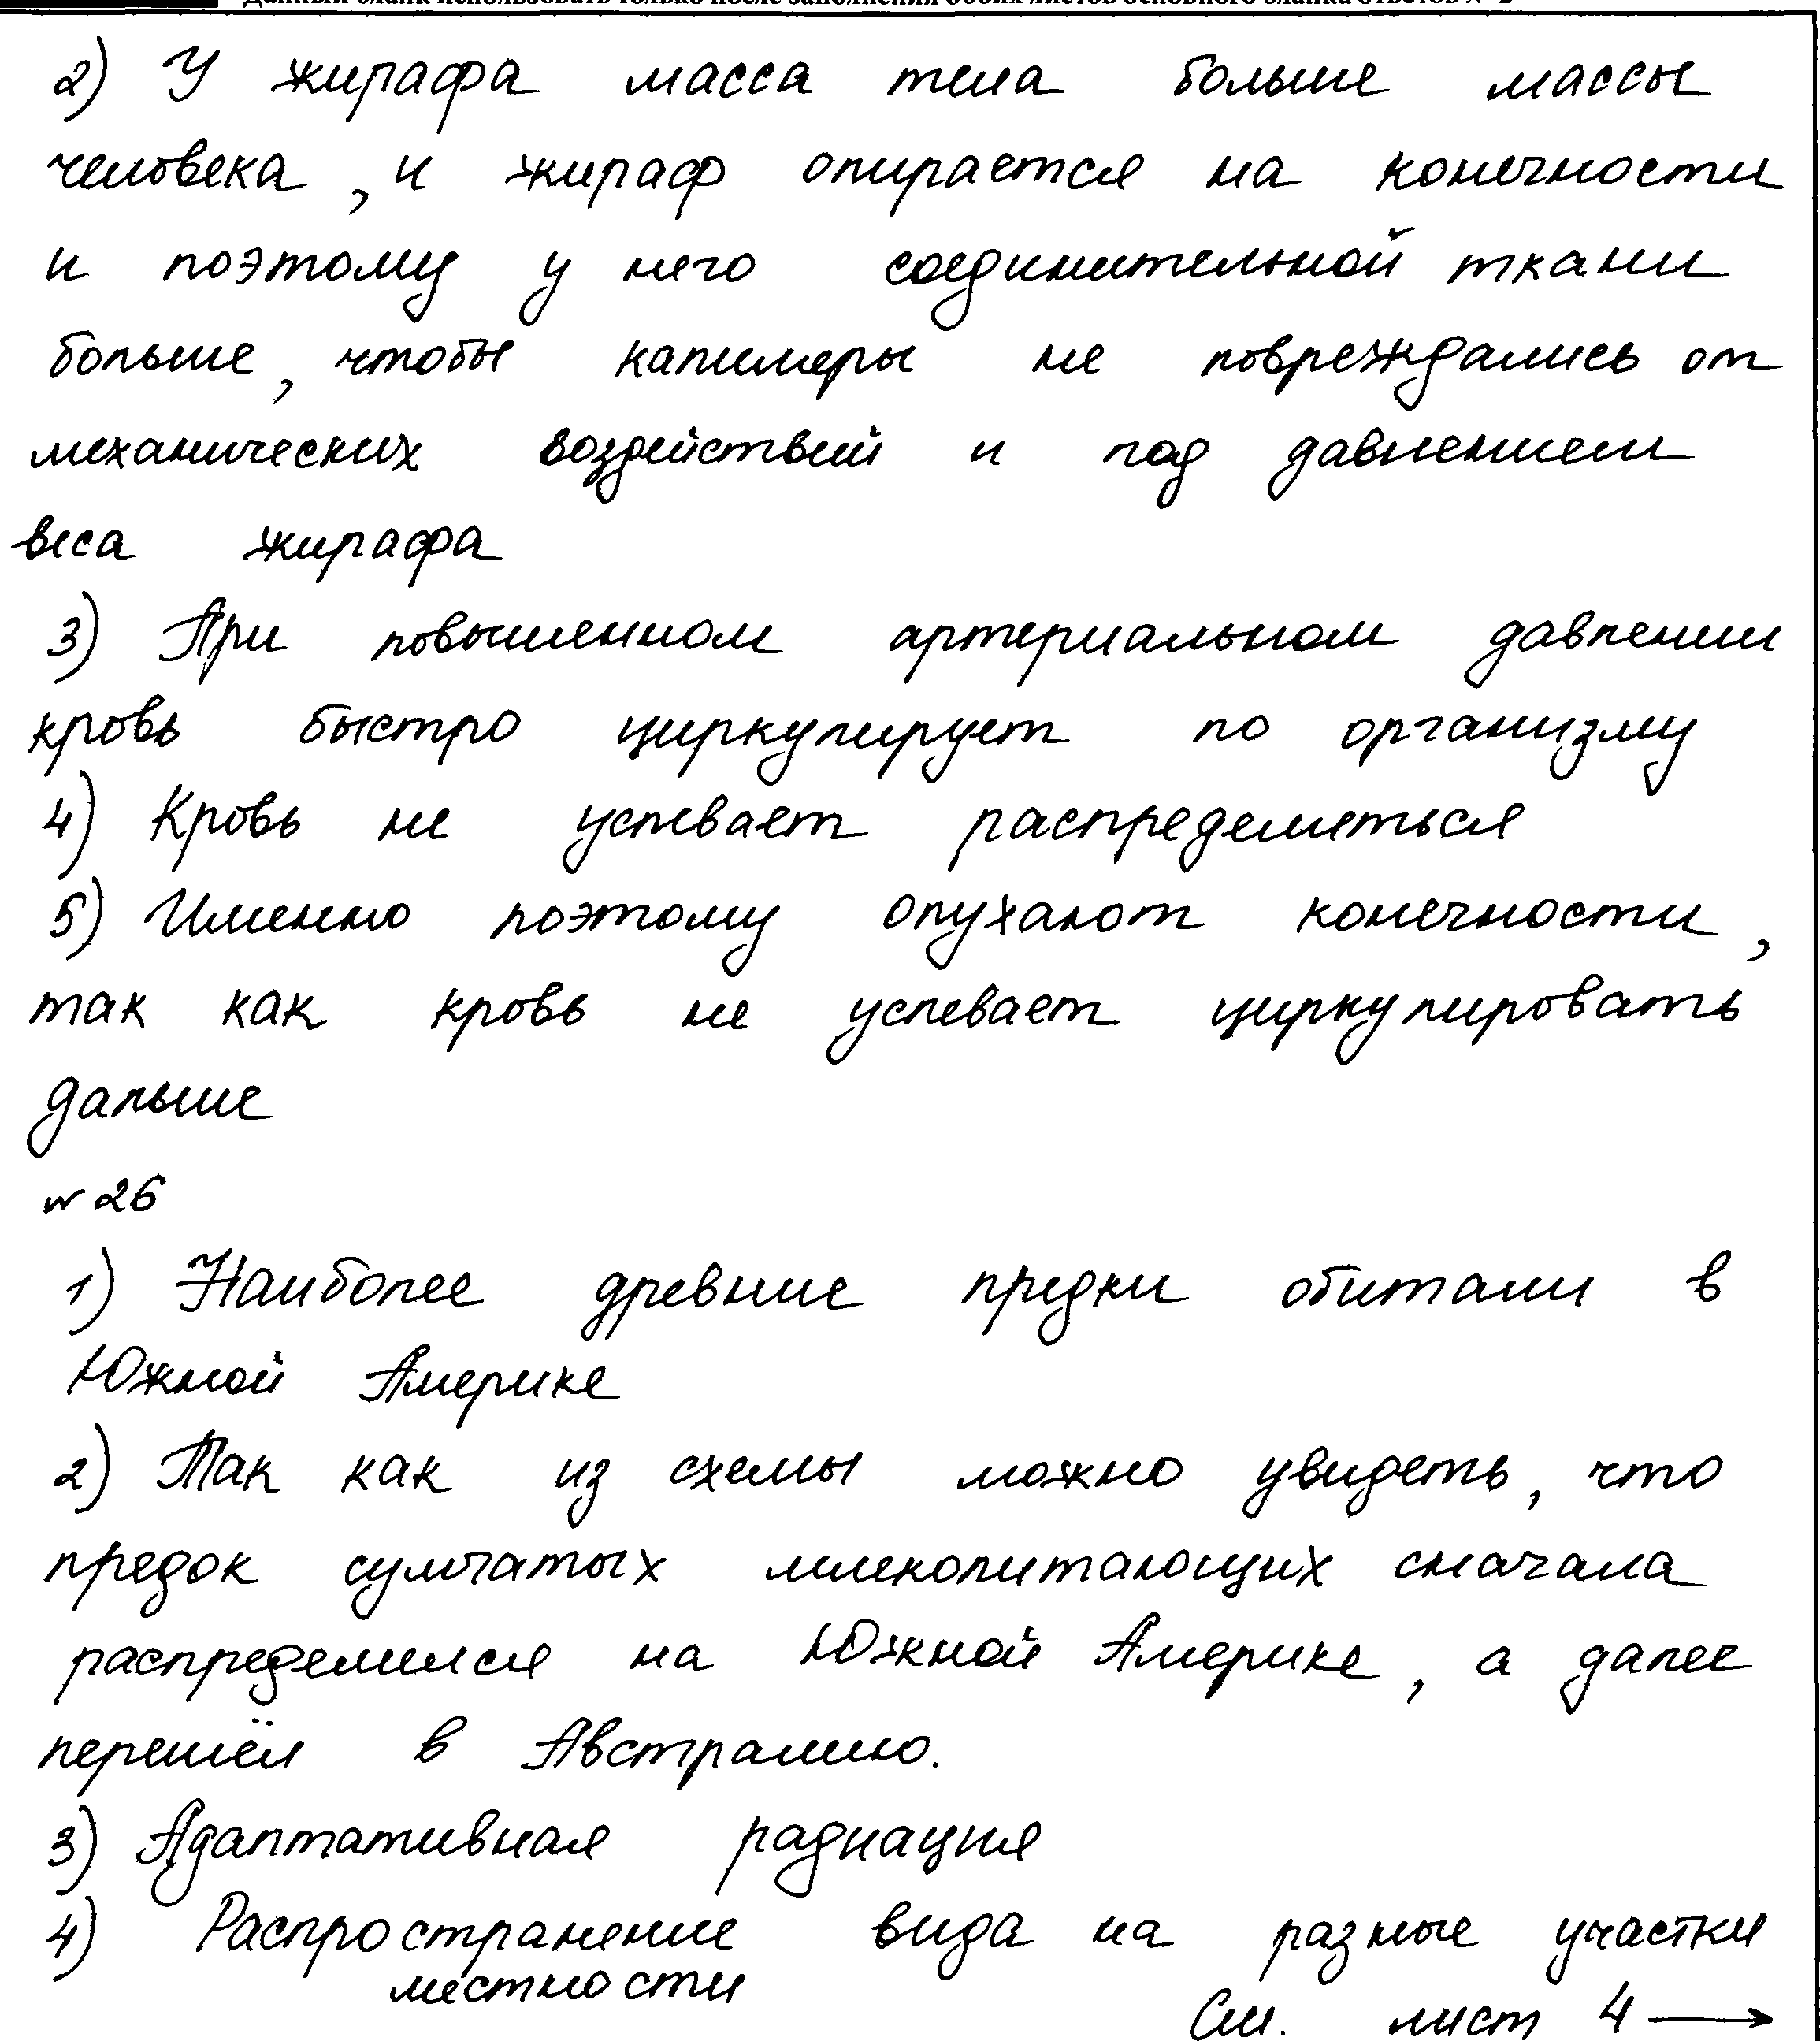 Данный бланк использовать только после заполнения обоих листов основного бланка ответов № 2
2) У жирафа масса тела больше массы
человека, и жираф опирается на конечности
и поэтому у него соединительной ткани
больше, чтобы капилляры не повреждались от
механических воздействий и под давлением
веса жирафа
3) При повышенном артериальном давлении
кровь быстро циркулирует по организму
4) Кровь не успевает распределиться
5) Именно поэтому опухают конечности,
так как кровь не успевает циркулировать
дальше
№ 26
1) Наиболее древние предки обитали в
Южной Америке
2) Так как из схемы можно увидеть, что
предок сумчатых млекопитающих сначала
распределился на Южной Америке, а далее
перешёл в Австралию.
3) Адаптативная радиация
4) Распространение вида на разные участки
местности
См. лист 4 →